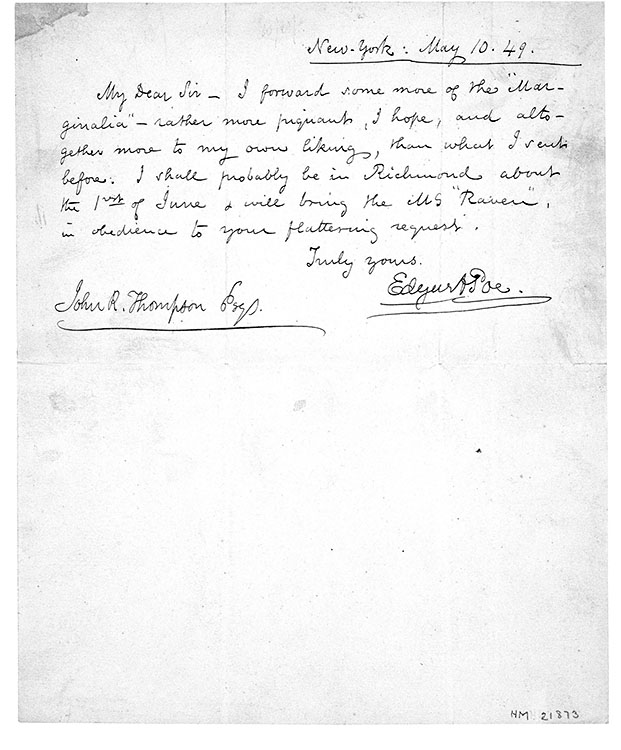 New-York: May 10. 49.
My Dear Sir — I forward some more of the "Mar-
ginalia" — rather more piquant, I hope, and alto-
gether more to my own liking, than what I sent
before. I shall probably be in Richmond about
the 1rst of June & will bring the MS "Raven",
in obedience to your flattering request.
Truly yours.
Edgar A Poe.
John R. Thompson Esqr.
HM 21873